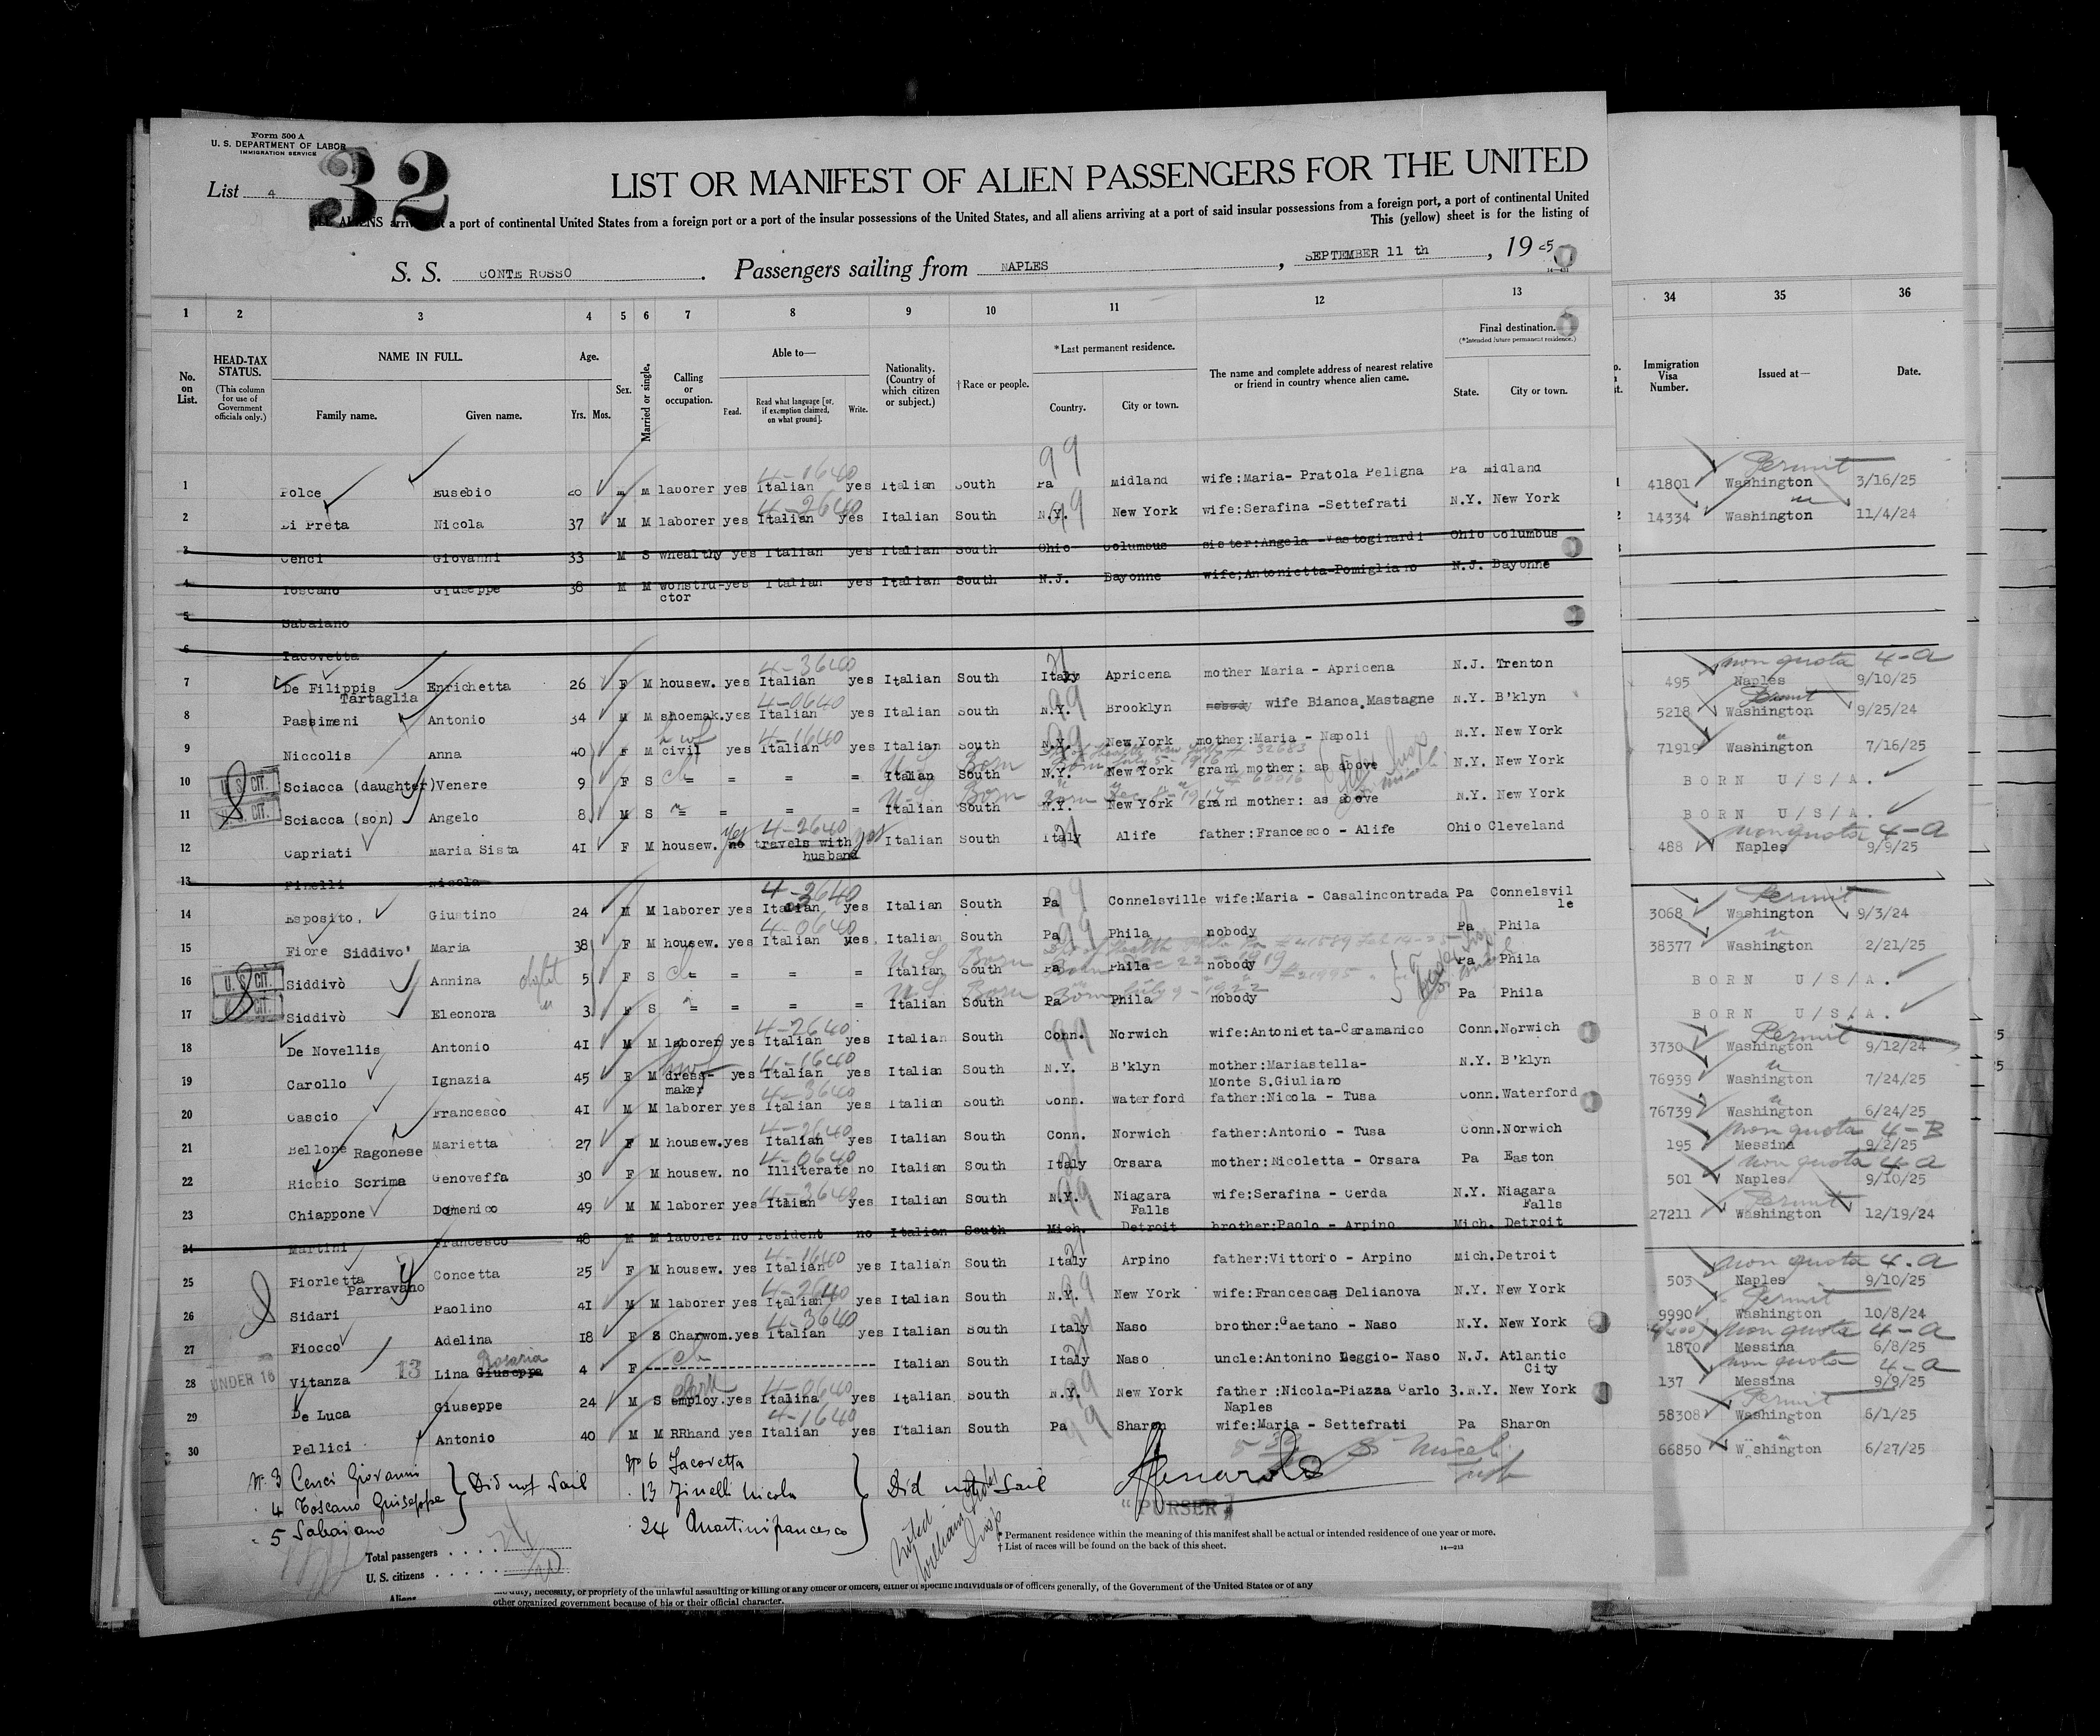 Form 500 A
U. S. DEPARTMENT OF LABOR
IMMIGRATION SERVICE
32
List 4
LIST OR MANIFEST OF ALIEN PASSENGERS FOR THE UNITED
ALIENS arriving at a port of continental United States from a foreign port or a port of the insular possessions of the United States, and all aliens arriving at a port of said insular possessions from a foreign port, a port of continental United
This (yellow) sheet is for the listing of
S. S. CONTE ROSSO. Passengers sailing from NAPLES, SEPTEMBER 11 th, 1925
1 2 3 4 5 6 7 8 9 10 11 12 13 34 35 36
No. on List.
HEAD-TAX STATUS. (This column for use of Government officials only.)
NAME IN FULL. Family name. Given name.
Age. Yrs. Mos.
Sex.
Married or single.
Calling or occupation.
Able to— Read. Read what language [or, if exemption claimed, on what ground]. Write.
Nationality. (Country of which citizen or subject.)
† Race or people.
*Last permanent residence. Country. City or town.
The name and complete address of nearest relative or friend in country whence alien came.
Final destination. (*Intended future permanent residence.) State. City or town.
Immigration Visa Number.
Issued at—
Date.
1 Polce Eusebio M laborer yes Italian 4-1640 yes Italian South 99 Pa Midland wife:Maria- Pratola Peligna Pa Midland 41801 Permit Washington 3/16/25
2 Di Preta Nicola 37 M M laborer yes Italian 4-2640 yes Italian South 99 N.Y. New York wife:Serafina -Settefrati N.Y. New York 14334 " Washington 11/4/24
3 Cenci Giovanni 33 M S whealthy yes Italian yes Italian South Ohio Columbus sister:Angela -Vastogirardi Ohio Columbus
4 Toscano Giuseppe 38 M M constru-ctor yes Italian yes Italian South N.J. Bayonne wife;Antonietta-Pomigliano N.J. Bayonne
5 Sabaiano
6 Iacovetta
7 De Filippis Tartaglia Enrichetta 26 F M housew. yes Italian 4-3640 yes Italian South Italy Apricena mother Maria - Apricena N.J. Trenton 495 non quota 4-a Naples 9/10/25
8 Passimeni Antonio 34 M M shoemak. yes Italian 4-0640 yes Italian South 99 N.Y. Brooklyn nobody wife Bianca,Mastagne N.Y. B'klyn 5218 Permit Washington 9/25/24
9 Niccolis Anna 40 F M civil hwf yes Italian 4-1640 yes Italian South 99 N.Y. New York mother:Maria - Napoli N.Y. New York 71919 " Washington 7/16/25
10 U. S. CIT. Sciacca (daughter) Venere 9 F S = = = = Italian South U.S. Born N.Y. New York grand mother: as above N.Y. New York BORN U/S/A.
11 U. S. CIT. Sciacca (son) Angelo 8 M S = = = = Italian South U.S. Born N.Y. New York grand mother: as above N.Y. New York BORN U/S/A.
12 Capriati Maria Sista 41 F M housew. no yes travels with husband 4-2640 yes Italian South Italy Alife father:Francesco - Alife Ohio Cleveland 488 non quota 4-a Naples 9/9/25
13 Finelli Nicola
14 Esposito, Giustino 24 M M laborer yes Italian 4-2640 yes Italian South 99 Pa Connelsville wife:Maria - Casalincontrada Pa Connelsville 3068 Permit Washington 9/3/24
15 Fiore Siddivo' Maria 38 F M housew. yes Italian 4-0640 yes. Italian South 99 Pa Phila nobody Pa Phila 38377 " Washington 2/21/25
16 U. S. CIT. Siddivò Annina 5 F S = = = = Italian South U.S. Born Dec 22 - 1919 Pa Phila nobody Pa Phila BORN U/S/A.
17 U. S. CIT. Siddivò Eleonora 3 F S = = = = Italian South U.S. Born July 9 - 1922 Pa Phila nobody Pa Phila BORN U/S.A.
18 De Novellis Antonio 41 M M laborer yes Italian 4-2640 yes Italian South 99 Conn. Norwich wife:Antonietta-Caramanico Conn. Norwich 3730 Permit Washington 9/12/24
19 Carollo Ignazia 45 F M dress-maker hwf yes Italian 4-1640 yes Italian South N.Y. B'klyn mother:Mariastella-Monte S.Giuliano N.Y. B'klyn 76939 " Washington 7/24/25
20 Cascio Francesco 41 M M laborer yes Italian 4-3640 yes Italian South Conn. Waterford father:Nicola - Tusa Conn. Waterford 76739 " Washington 6/24/25
21 Bellone Ragonese Marietta 27 F M housew. yes Italian 4-2640 yes Italian South Conn. Norwich father:Antonio - Tusa Conn. Norwich 195 non quota 4-B Messina 9/2/25
22 Riccio Scrima Genoveffa 30 F M housew. no Illiterate 4-0640 no Italian South Italy Orsara mother:Nicoletta - Orsara Pa Easton 501 non quota 4-a Naples 9/10/25
23 Chiappone Domenico 49 M M laborer yes Itlian 4-3640 yes Italian South 99 N.Y. Niagara Falls wife:Serafina - Cerda N.Y. Niagara Falls 27211 Permit Washington 12/19/24
24 Martini Francesco 48 M M laborer no resident no Italian South Mich. Detroit brother:Paolo - Arpino Mich. Detroit
25 Fiorletta Parravano Concetta 25 F M housew. yes Italian 4-1640 yes Italian South Italy Arpino father:Vittorio - Arpino Mich. Detroit 503 non quota 4.a Naples 9/10/25
26 Sidari Paolino 41 M M laborer yes Italian 4-2640 yes Italian South 99 N.Y. New York wife:Francesca Delianova N.Y. New York 9990 Permit Washington 10/8/24
27 Fiocco Adelina 18 F S Charwom. yes Italian 4-3640 yes Italian South Italy Naso brother:Gaetano - Naso N.Y. New York 1870 non quota 4-a Messina 6/8/25
28 UNDER 16 Vitanza 13 Lina Giuseppa Rosaria 4 F Italian South Italy Naso uncle:Antonino Leggio- Naso N.J. Atlantic City 137 non quota 4-a Messina 9/9/25
29 De Luca Giuseppe 24 M S employ. yes Italina 4-0640 yes Italian South 99 N.Y. New York father :Nicola-Piazza Carlo 3. Naples N.Y. New York 58308 Permit Washington 6/1/25
30 Pellici Antonio 40 M M RRhand yes Italian 4-1640 yes Italian South 99 Pa Sharon wife:Maria - Settefrati Pa Sharon 66850 " Washington 6/27/25
N. 3 Cenci Giovanni
" 4 Toscano Guiseppe } Did not Sail
" 5 Sabaiano
Nº 6 Iacovetta
" 13 Finelli Nicola } Did not Sail
" 24 Martini francesco
"PURSER"
Total passengers
U. S. citizens
Aliens
* Permanent residence within the meaning of this manifest shall be actual or intended residence of one year or more.
† List of races will be found on the back of this sheet.
14—213
the duty, necessity, or propriety of the unlawful assaulting or killing of any officer or officers, either of specific individuals or of officers generally, of the Government of the United States or of any
other organized government because of his or their official character.